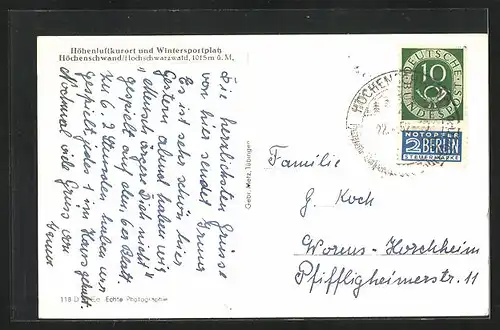 Höhenluftkurort und Wintersportplatz
Höchenschwand/Hochschwarzwald, 1015 m ü. M.
Die herzlichsten Grüsse
von hier sendet
Es ist sehr schön hier
Gestern abend haben wir
„Mensch ärgere Dich nicht"
gespielt auf dem
zu 6. 2 Stunden haben wir
gespielt jedes 1 im Haus
Nochmal viele Grüsse von
118 Echte Photographie
Gebr. Metz, Tübingen
DEUTSCHE
BUNDESPOST
10
HÖCHENS
NOTOPFER
2 BERLIN
STEUERMARKE
Familie
G. Koch
Worms-Horchheim
Pfiffligheimerstr. 11